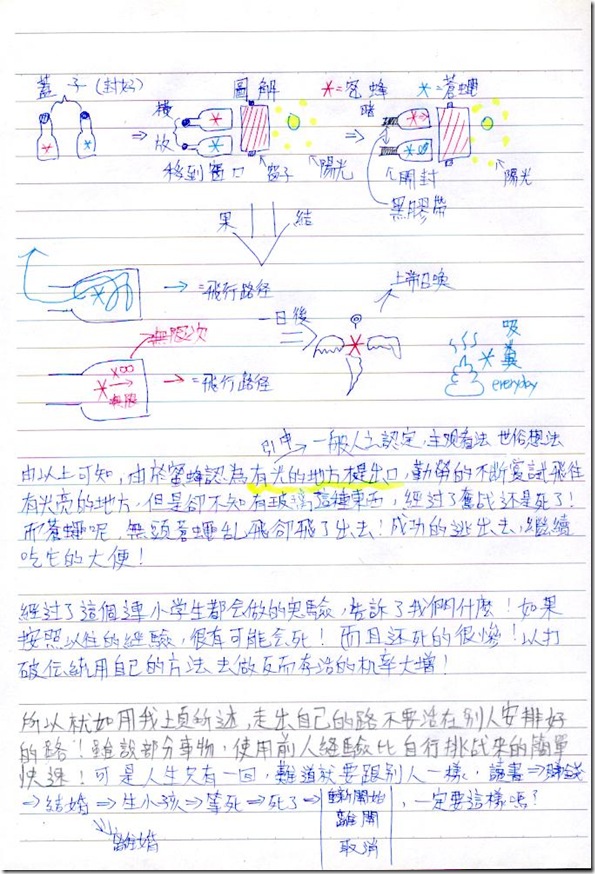 蓋子(封好)
圖解 *=蜜蜂 *=蒼蠅
橫放
⇒
移到窗口
窗子
陽光
⇒
開封
黑膠帶
陽光
結果
→=飛行路径
一日後
上帝召喚
無限次
無限
→=飛行路径
吸糞
everyday
引申→一般人之認定,主观看法 世俗想法
由以上可知,由於蜜蜂認為有光的地方便是出口,勤勞的不断嘗試飛往
有光亮的地方,但是卻不知有玻璃這種東西,經過了奮战还是死了!
而蒼蠅呢,無頭蒼蠅乱飛卻飛了出去!成功的逃出去,繼續
吃它的大便!
經过了這個連小学生都会做的实驗,告訴了我們什麼!如果
按照以往的經驗,很有可能会死!而且还死的很慘!以打
破伝統用自己的方法去做反而存活的机率大增!
所以就如用我上頁所述,走出自己的路不要活在別人安排好
的路!雖說部分事物,使用前人經驗比自行挑战來的簡單
快速!可是人生只有一回,難道就要跟別人一樣,讀書⇒賺錢
⇒結婚⇒生小孩⇒等死⇒死了⇒重新開始,一定要這樣嗎?
離婚
離開
取消